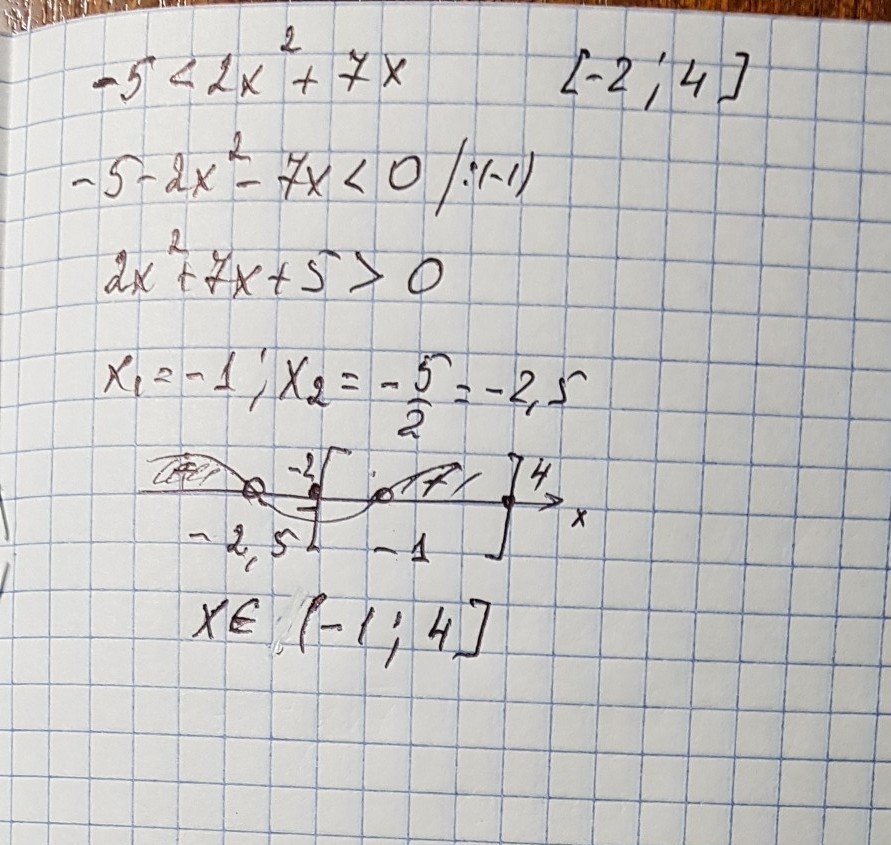 -5 < 2x² + 7x [-2; 4]
-5 - 2x² - 7x < 0 /:(-1)
2x² + 7x + 5 > 0
x₁ = -1; x₂ = -5/2 = -2,5
+ -2 + 4
-2,5 - -1 x
x ∈ (-1; 4]